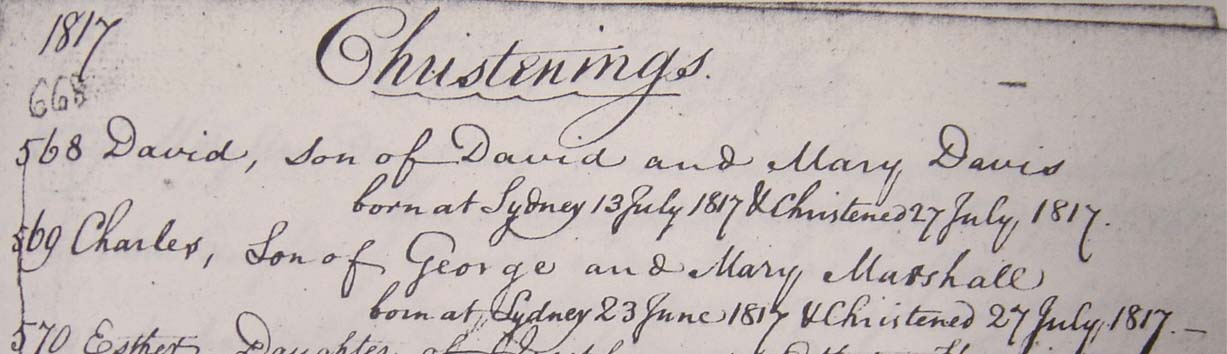 1817
Christenings.
668
568 David, son of David and Mary Davis
born at Sydney 13 July 1817 & Christened 27 July, 1817.
569 Charles, Son of George and Mary Marshall
born at Sydney 23 June 1817 & Christened 27 July, 1817. —
570 Esther Daughter of